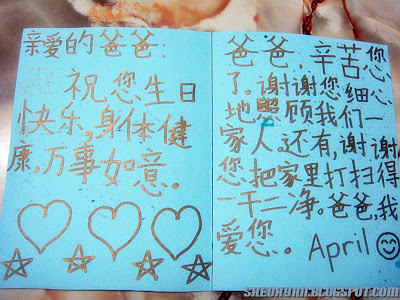 亲爱的爸爸:
祝您生日
快乐,身体健
康,万事如意。
爸爸,辛苦您
了。谢谢您细心
地照顾我们一
家人。还有,谢谢
您把家里打扫得
一干二净。爸爸,我
爱您。April
SHEUHYNN.BLOGSPOT.COM